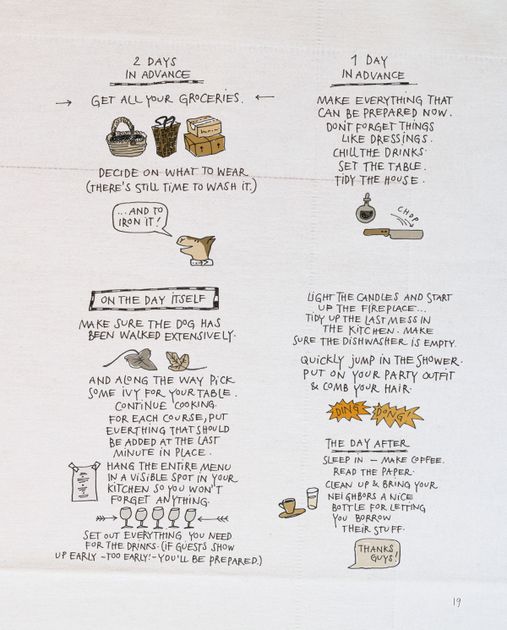 2 DAYS
IN ADVANCE
GET ALL YOUR GROCERIES.
DECIDE ON WHAT TO WEAR
(THERE'S STILL TIME TO WASH IT.)
...AND TO
IRON IT!
1 DAY
IN ADVANCE
MAKE EVERYTHING THAT
CAN BE PREPARED NOW.
DON'T FORGET THINGS
LIKE DRESSINGS.
CHILL THE DRINKS.
SET THE TABLE.
TIDY THE HOUSE.
CHOP
ON THE DAY ITSELF
MAKE SURE THE DOG HAS
BEEN WALKED EXTENSIVELY.
AND ALONG THE WAY PICK
SOME IVY FOR YOUR TABLE.
CONTINUE COOKING.
FOR EACH COURSE, PUT
EVERYTHING THAT SHOULD
BE ADDED AT THE LAST
MINUTE IN PLACE.
HANG THE ENTIRE MENU
IN A VISIBLE SPOT IN YOUR
KITCHEN SO YOU WON'T
FORGET ANYTHING.
SET OUT EVERYTHING YOU NEED
FOR THE DRINKS. (IF GUESTS SHOW
UP EARLY -TOO EARLY!- YOU'LL BE PREPARED.)
LIGHT THE CANDLES AND START
UP THE FIREPLACE...
TIDY UP THE LAST MESS IN
THE KITCHEN. MAKE
SURE THE DISHWASHER IS EMPTY.
QUICKLY JUMP IN THE SHOWER.
PUT ON YOUR PARTY OUTFIT
& COMB YOUR HAIR.
DING DONG!
THE DAY AFTER
SLEEP IN - MAKE COFFEE.
READ THE PAPER.
CLEAN UP & BRING YOUR
NEIGHBORS A NICE
BOTTLE FOR LETTING
YOU BORROW
THEIR STUFF.
THANKS,
GUYS!
19